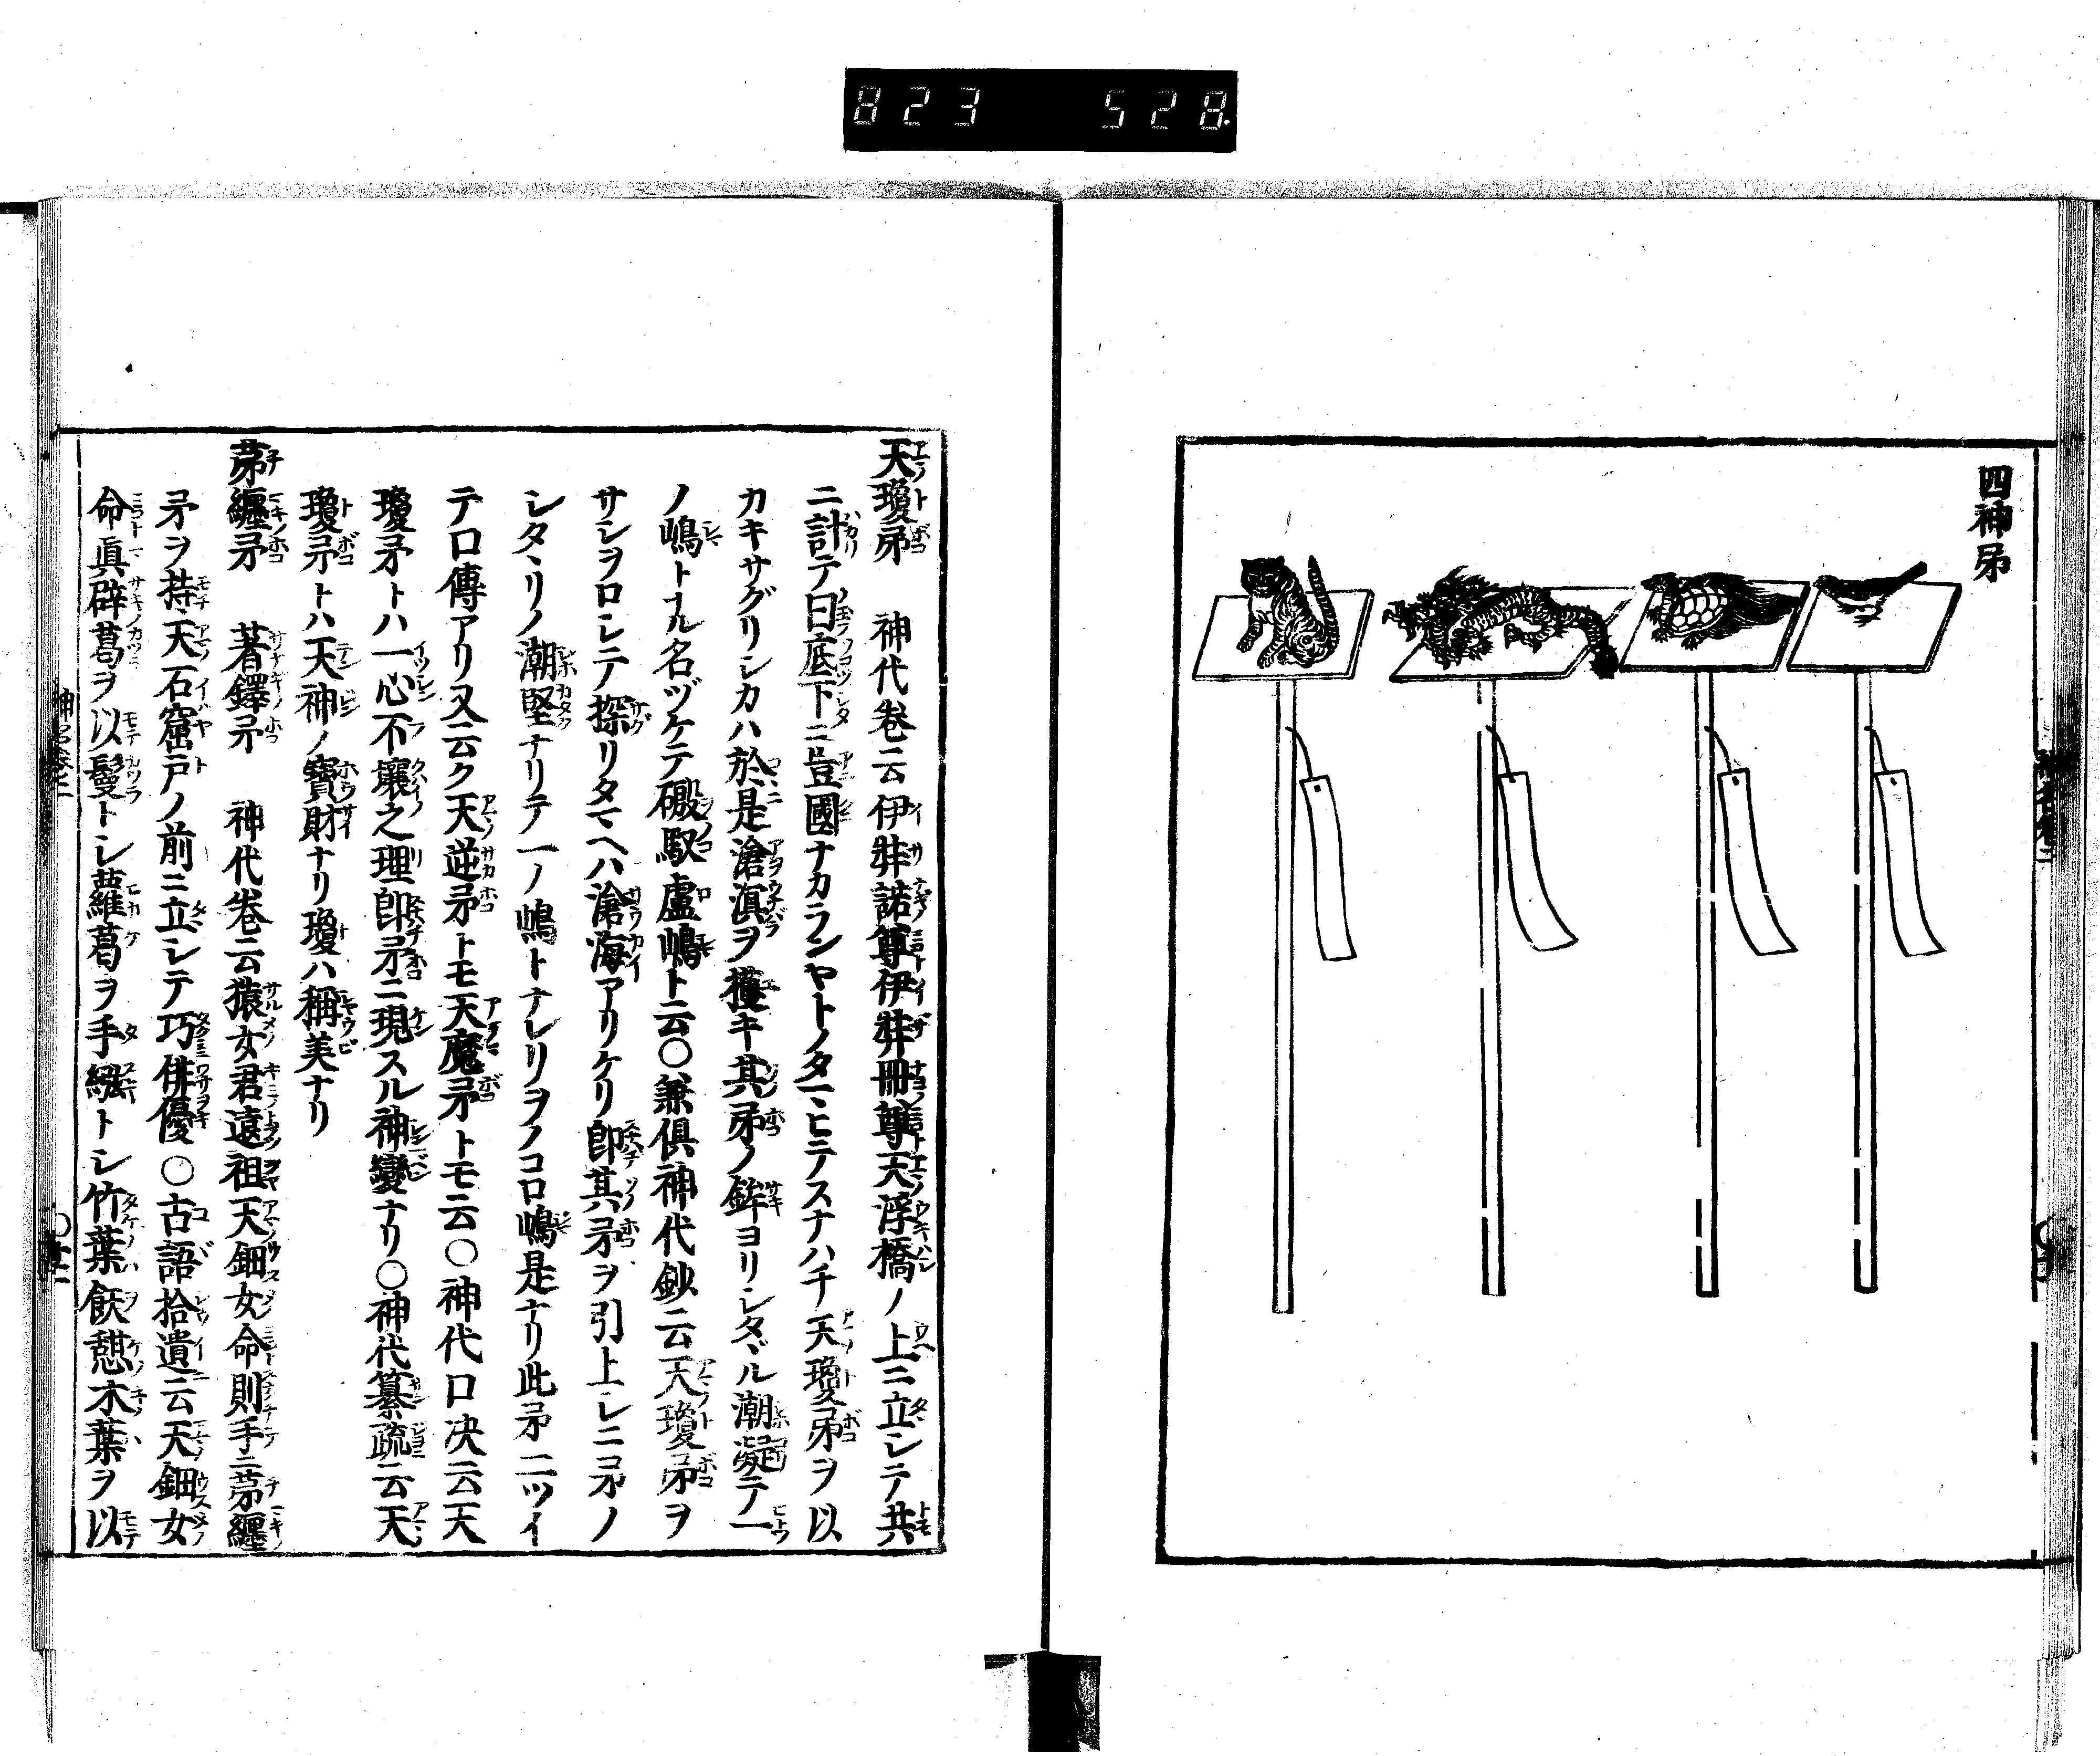 823 528
四神矛
天瓊矛 神代巻云伊弉諾尊伊弉冊尊天浮橋ノ上ニ立シテ共
ニ計テ曰底下ニ豈國ナカランヤトノタマヒテスナハチ天瓊矛ヲ以
カキサグリシカハ於是滄溟ヲ獲キ其矛ノ鋒ヨリシタヾル潮凝テ一
ノ嶋トナル名ヅケテ磤馭盧嶋ト云○兼倶神代鈔ニ云天瓊矛ヲ
サシヲロシテ探リタマヘハ滄海アリケリ即其矛ヲ引上シニ矛ノ
シタヽリノ潮堅ナリテ一ノ嶋トナレリヲノコロ嶋是ナリ此矛ニツイ
テ口傳アリ又云ク天逆矛トモ天魔矛トモ云○神代口决云天
瓊矛トハ一心不壊之理即矛ニ現スル神變ナリ○神代纂疏云天
瓊矛トハ天神ノ寶財ナリ瓊ハ稱美ナリ
茅纏矛 著鐸矛 神代巻云猿女君遠祖天鈿女命則手ニ茅纏
矛ヲ持天石窟戸ノ前ニ立シテ巧俳優○古語拾遺云天鈿女
命眞辟葛ヲ以鬘トシ蘿葛ヲ手繦トシ竹葉飫憩木葉ヲ以